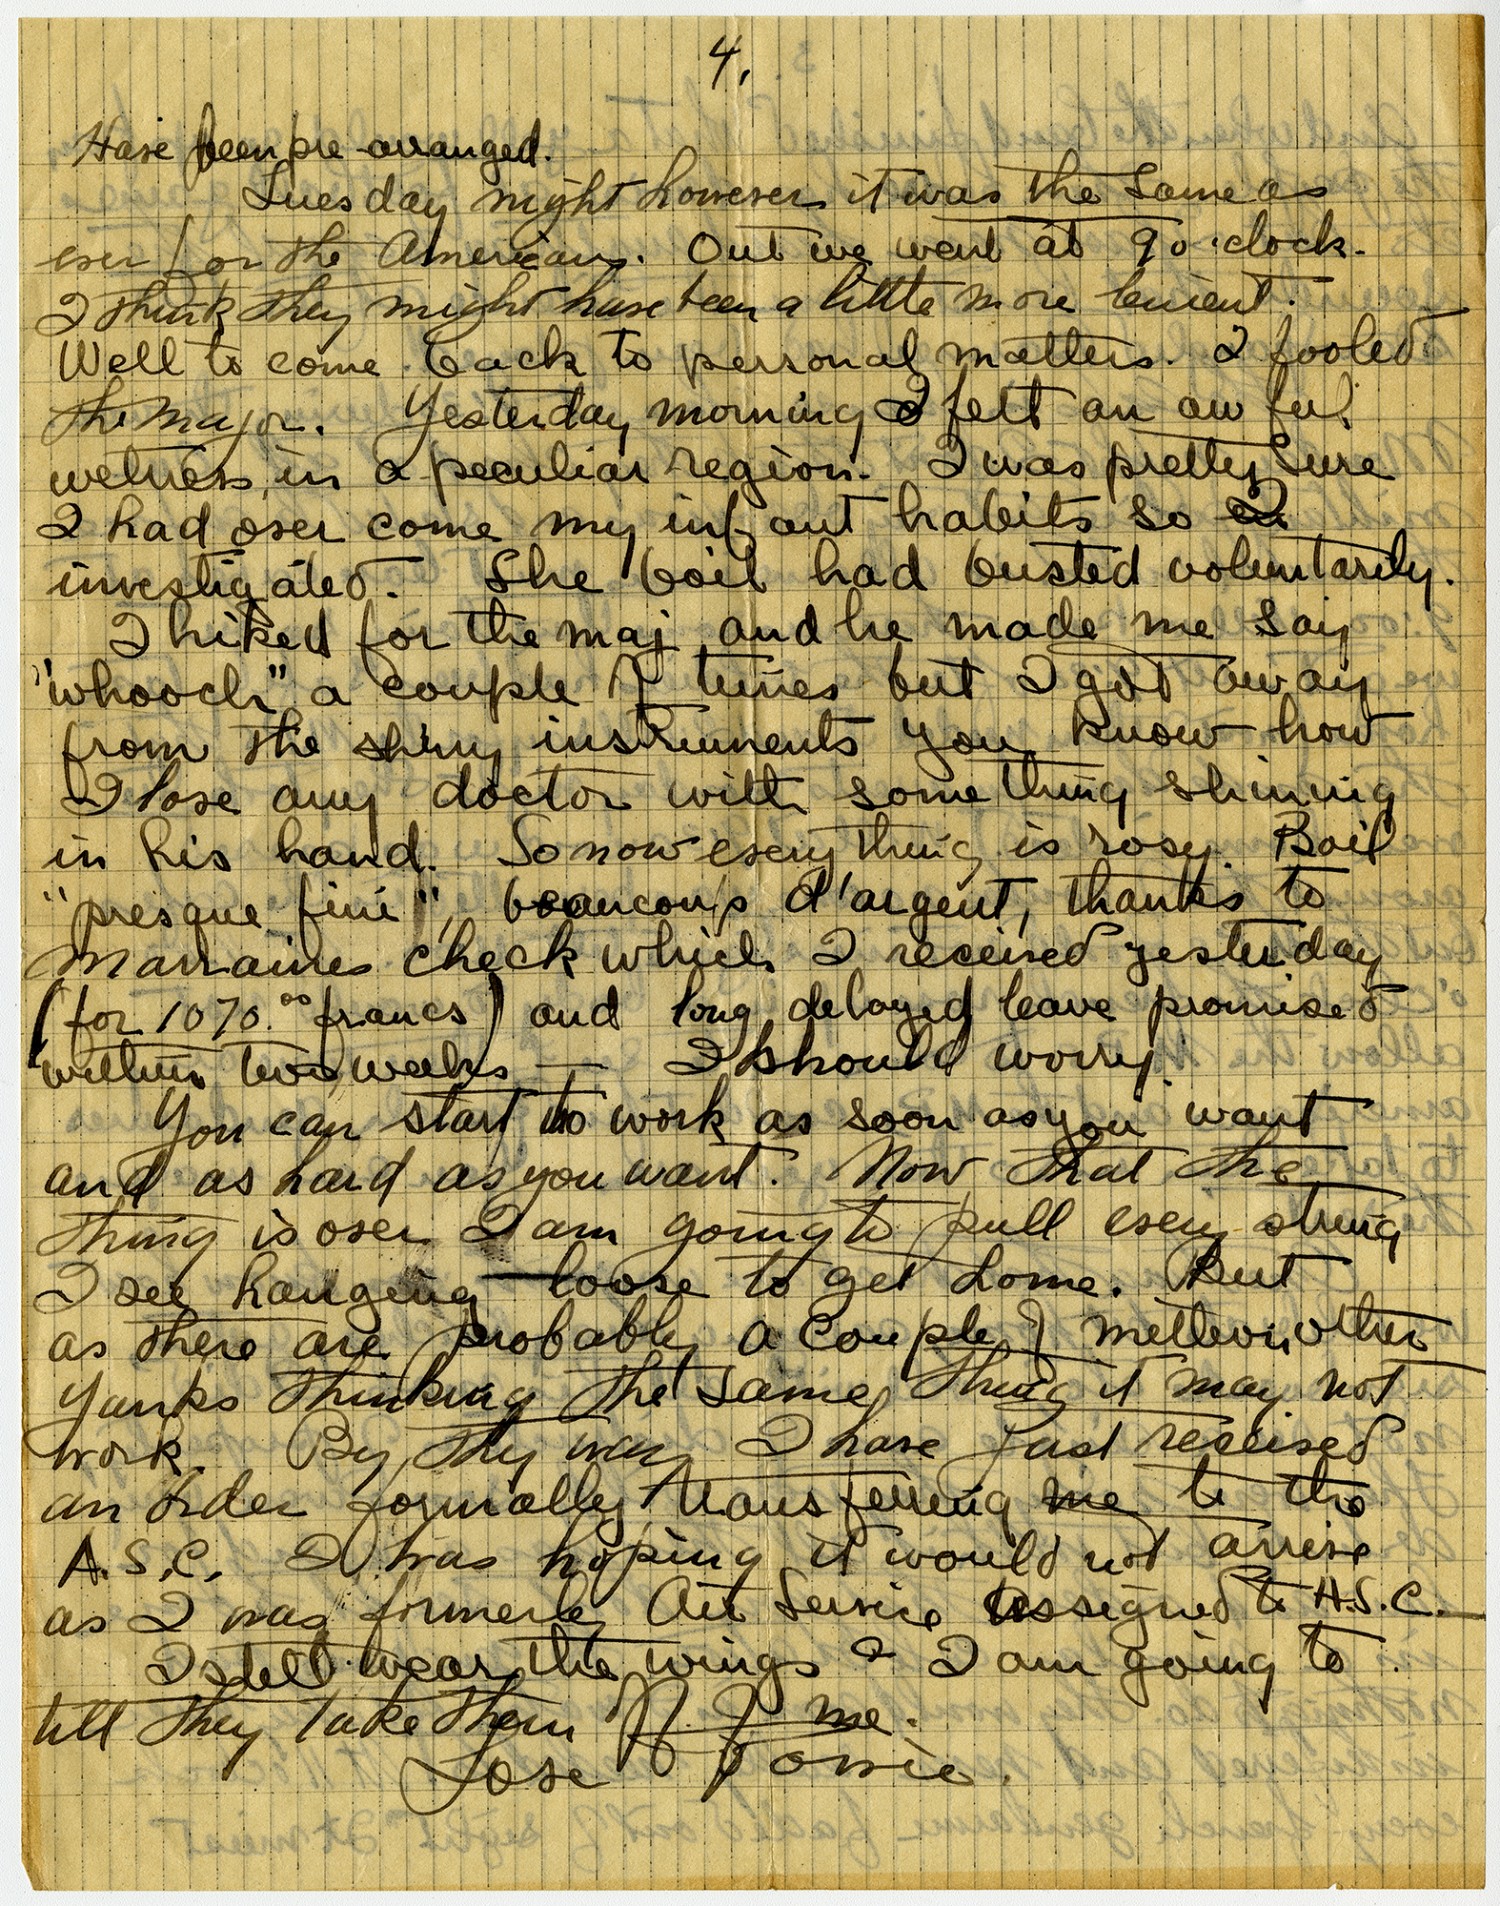 4.
Have been pre-arranged.
Tuesday night however it was the same as
ever for the Americans. Out we went at 9 o'clock.
I think they might have been a little more lenient.
Well to come back to personal matters. I fooled
the major. Yesterday morning I felt an awful
wetness, in a peculiar region. I was pretty sure
I had over come my infant habits so I
investigated. The boil had busted voluntarily.
I hiked for the maj and he made me say
"whooch" a couple of times but I got away
from the shiny instruments you know how
I love any doctor with something shining
in his hand. So now everything is rosy. Boil
"presque fini", beaucoup d'argent, thanks to
Marraines check which I received yesterday
(for 1070.00 francs) and long delayed leave promised
within two weeks — I should worry.
You can start to work as soon as you want
and as hard as you want. Now that the
thing is over I am going to pull every string
I see hanging loose to get home. But
as there are probably a couple of million other
Yanks thinking the same thing it may not
work. By thy way I have just received
an order formally transferring me to the
A.S.C. I was hoping it would not arrive
as I was formerly Air Service assigned to A.S.C.
I still wear the wings & I am going to
till they take them off me.
Love